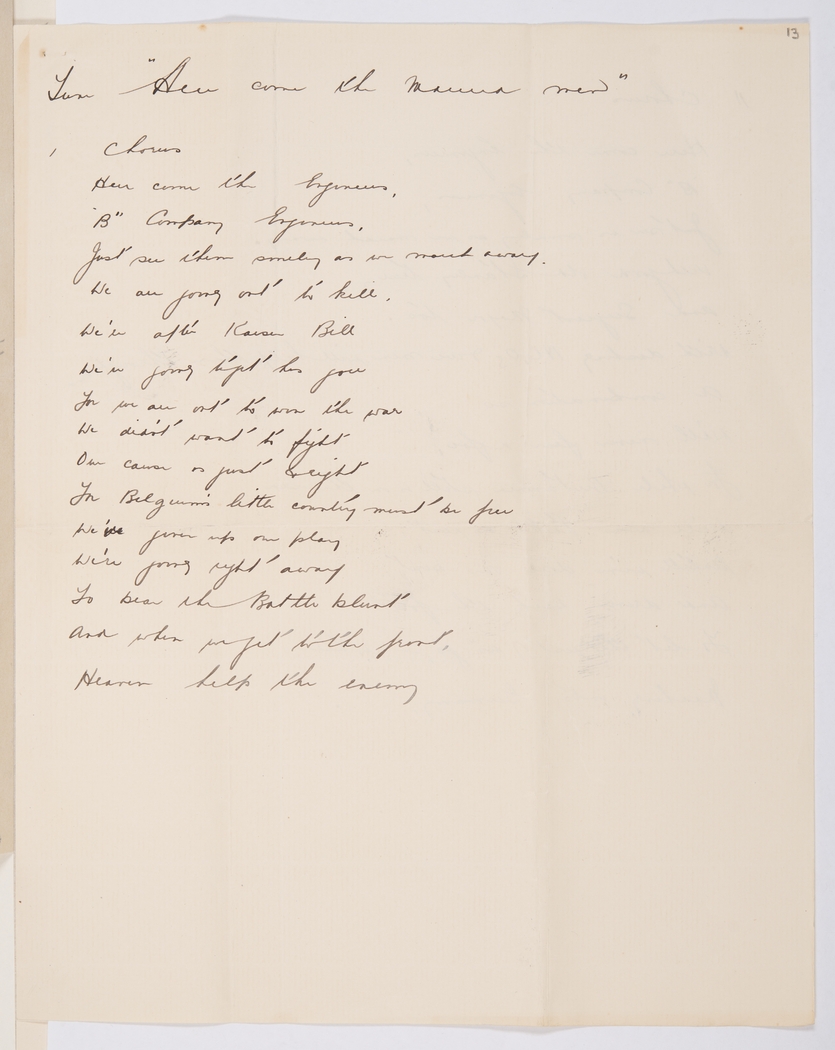 13
Tune "Here come the
men"
1 Chorus
Here come the Engineers,
"B" Company Engineers,
Just see them smiling as we march away.
We are going out to kill,
We're after Kaiser Bill
We're going to get his
For we are out to win the war
We didn't want to fight
Our cause is just & right
For Belgium's little country must be free
We've given up our play
We're going right away
To bear the Battle blunt
And when we get to the front,
Heaven help the enemy